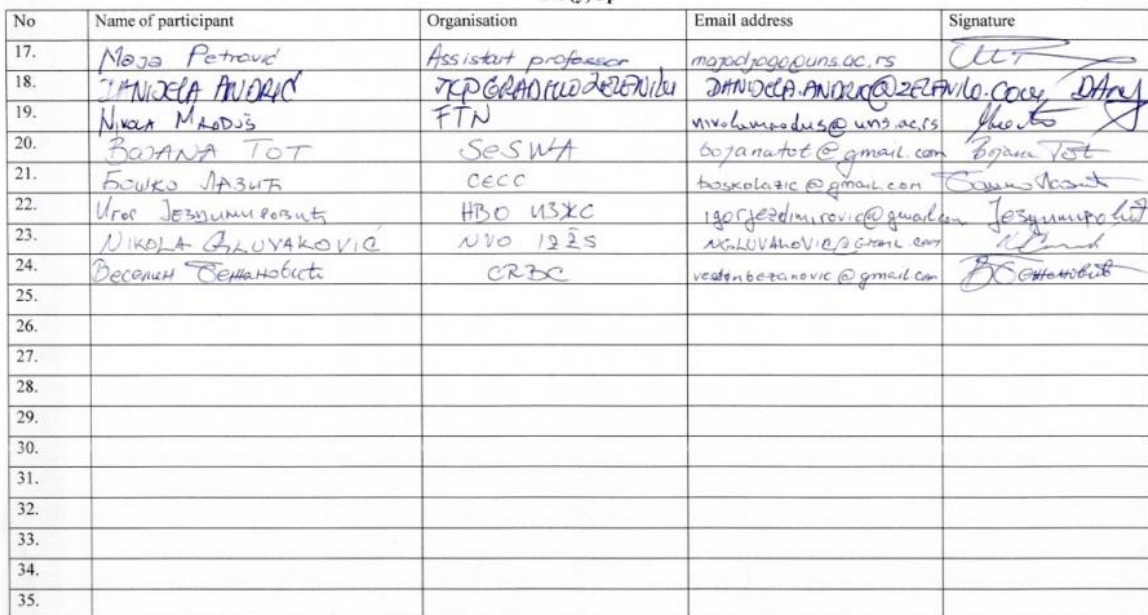 No Name of participant Organisation Email address Signature
17. Maja Petrović Assistant professor majadjogo@uns.ac.rs
18. DANIJELA ANDRIĆ JKP GRADSKO ZELENILO DANIJELA.ANDRIC@ZELENILO.COM DAndr
19. NIKOLA MAODUŠ FTN nikolamaodus@uns.ac.rs
20. BOJANA TOT SeSWA bojanatot@gmail.com Bojana Tot
21. БОШКО ЛАЗИЋ CECC boskolazic@gmail.com Бошко Лазић
22. Игор ЈЕЗДИМИРОВИЋ НВО ИЗЖС igorjezdimirovic@gmail.com Јездимировић
23. NIKOLA GLUVAKOVIĆ NVO IZŽS NGLUVAKOVIC@GMAIL.COM
24. Веселин Бежановић veselinbezanovic@gmail.com В Бежановић
25.
26.
27.
28.
29.
30.
31.
32.
33.
34.
35.